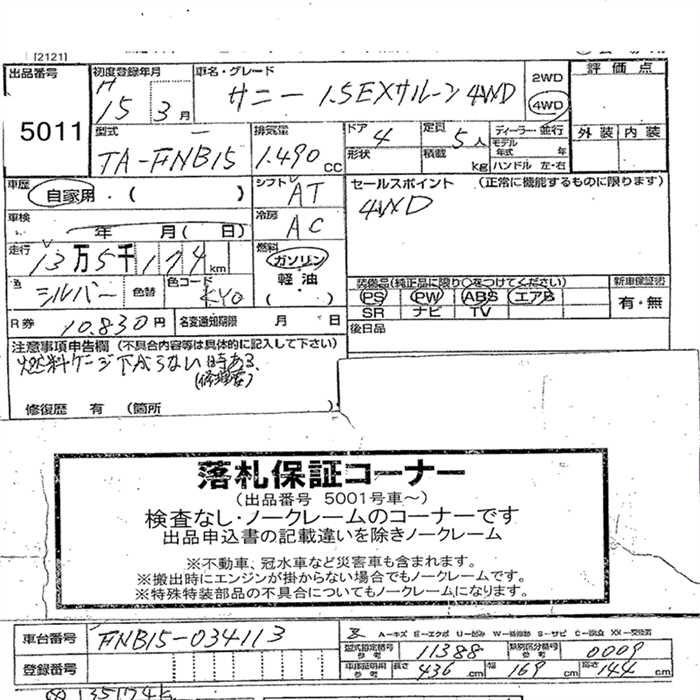 [2121]
出品番号 初度登録年月 車名・グレード 2WD 評価点
5011 H 15 3月 サニー 1.5EXサルーン 4WD 4WD
型式 排気量 ドア 4 定員 5人 ディーラー・並行 外装 内装
TA-FNB15 1.490cc 形状 積載 kg モデル年式 年
ハンドル 左・右
車歴 自家用・( ) シフト AT セールスポイント (正常に機能するものに限ります)
車検 年 月( 日) 冷房 AC 4WD
走行 13万5千174km 燃料 ガソリン 軽油 ( )
色 シルバー 色替 色コード KY0 装備品(純正品に限り○をつけてください) 新車保証書
PS PW ABS エアB 有・無
SR ナビ TV
R券 10.830円 名変通知期限 月 日 後日品
注意事項申告欄 (不具合内容等は具体的に記入して下さい)
燃料ゲージ下がらない時ある
(修理要)
修復歴 有 (箇所 )
落札保証コーナー
(出品番号 5001号車~)
検査なし・ノークレームのコーナーです
出品申込書の記載違いを除きノークレーム
※不動車、冠水車など災害車も含まれます。
※搬出時にエンジンが掛からない場合でもノークレームです。
※特殊特装部品の不具合についてもノークレームになります。
車台番号 FNB15-034113
A-キズ E-エクボ U-凹み W-補修跡 S-サビ C-腐食 XX-交換済
型式指定番号 参考 11388 類別区分番号 参考 0009
登録番号 車庫証明用 参考 長さ 436cm 幅 169cm 高さ 144cm
135174k